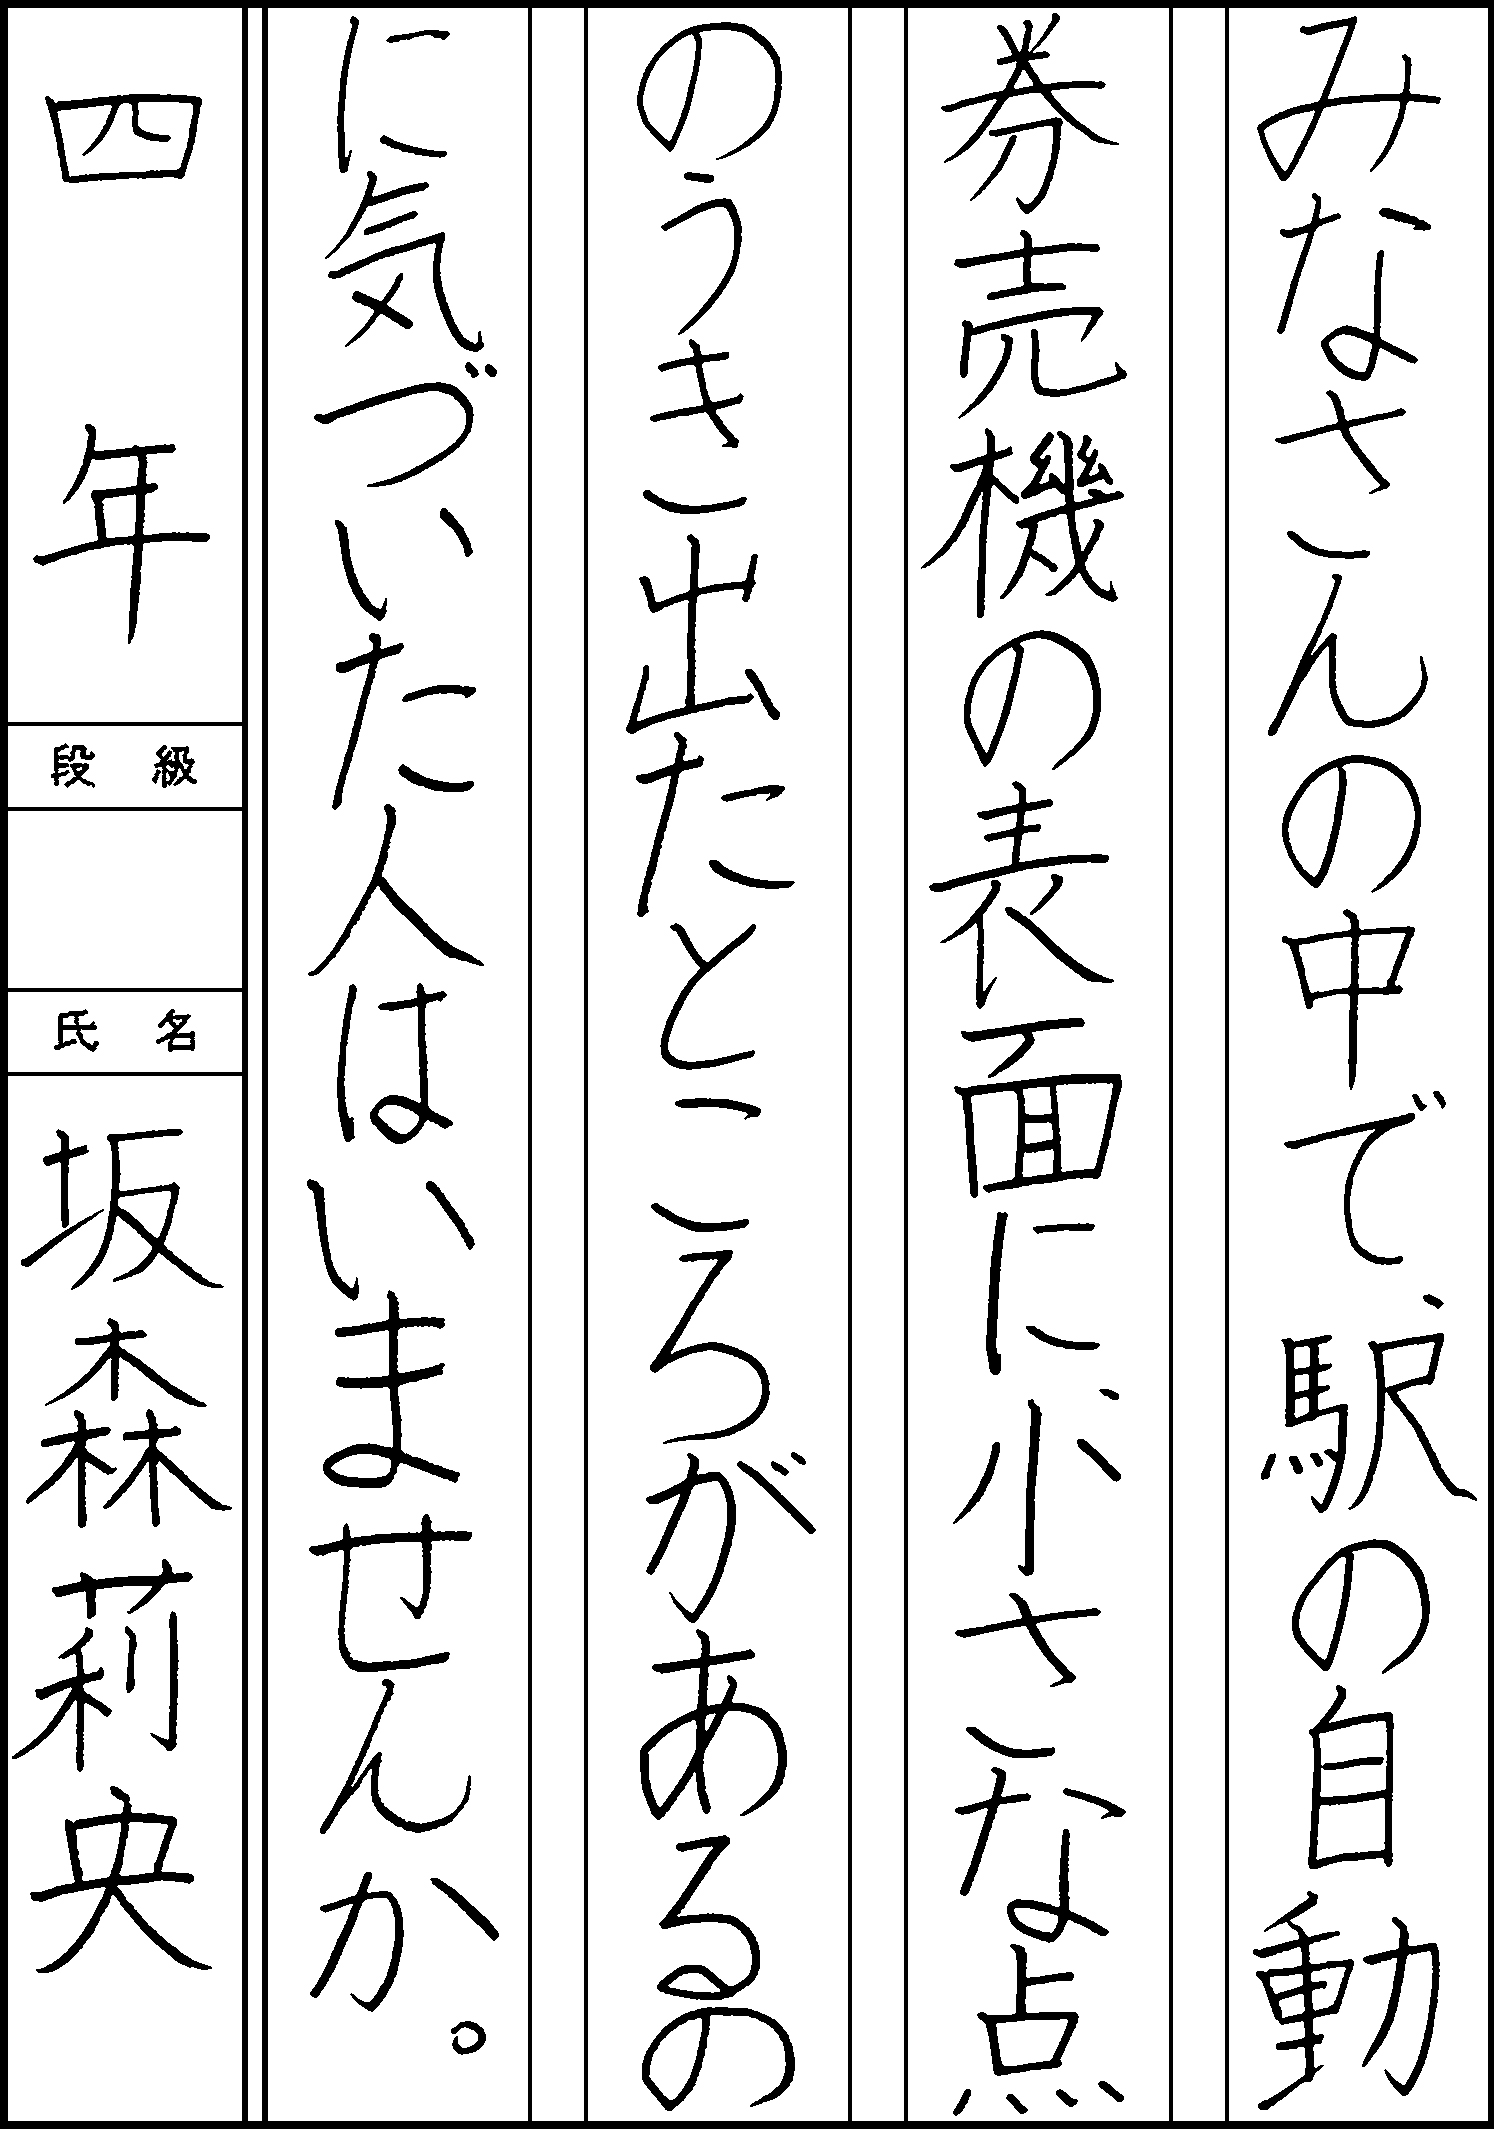 みなさんの中で、駅の自動
券売機の表面に小さな点
のうき出たところがあるの
に気づいた人はいませんか。
四年
段級
氏名
坂森莉央